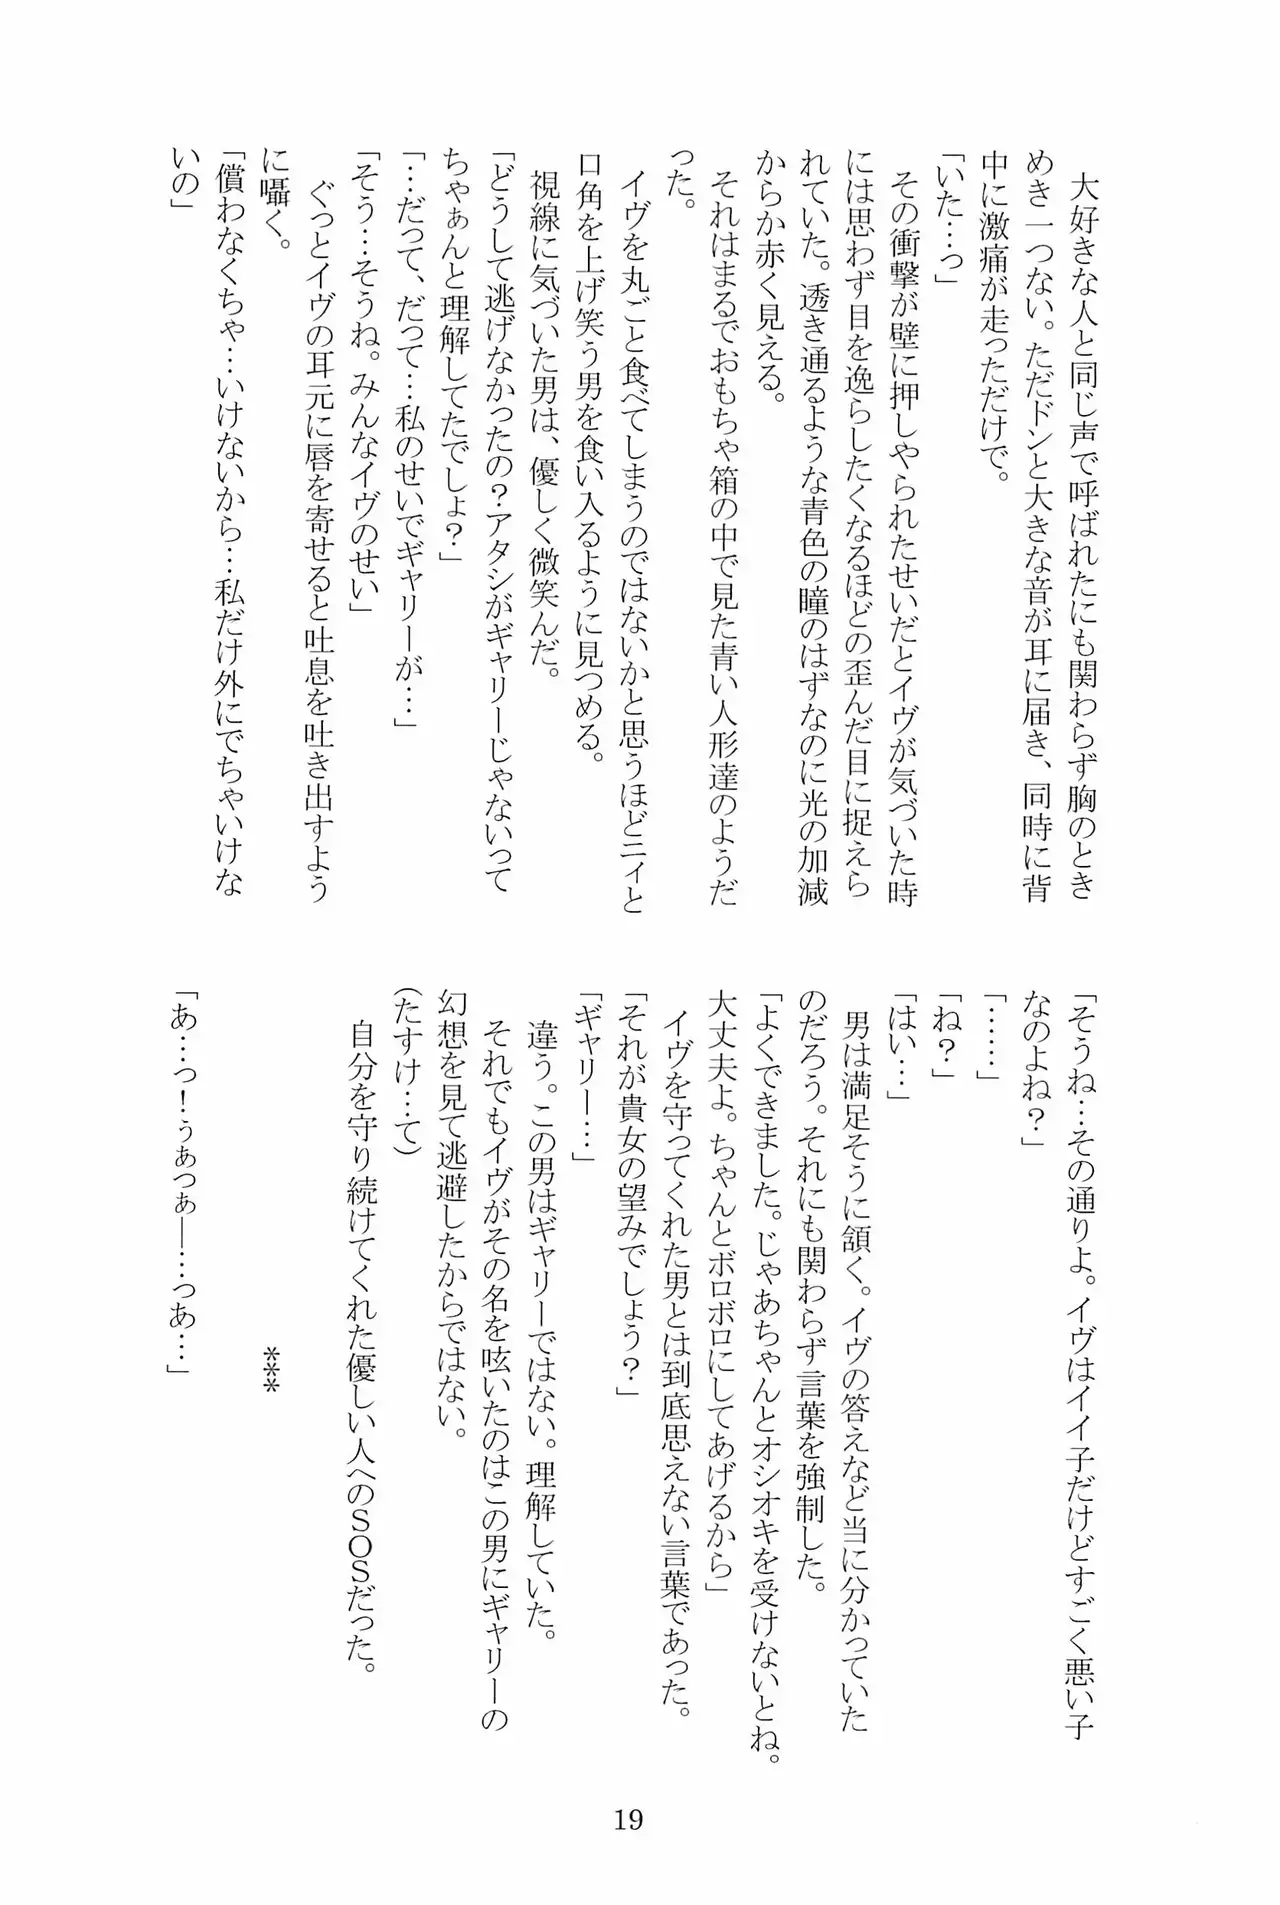 大好きな人と同じ声で呼ばれたにも関わらず胸のとき
めき一つない。ただドンと大きな音が耳に届き、同時に背
中に激痛が走っただけで。
「いた…っ」
その衝撃が壁に押しやられたせいだとイヴが気づいた時
には思わず目を逸らしたくなるほどの歪んだ目に捉えら
れていた。透き通るような青色の瞳のはずなのに光の加減
からか赤く見える。
それはまるでおもちゃ箱の中で見た青い人形達のようだ
った。
イヴを丸ごと食べてしまうのではないかと思うほどニィと
口角を上げ笑う男を食い入るように見つめる。
視線に気づいた男は、優しく微笑んだ。
「どうして逃げなかったの？アタシがギャリーじゃないって
ちゃぁんと理解してたでしょ？」
「…だって、だって…私のせいでギャリーが…」
「そう…そうね。みんなイヴのせい」
ぐっとイヴの耳元に唇を寄せると吐息を吐き出すよう
に囁く。
「償わなくちゃ…いけないから…私だけ外にでちゃいけな
いの」
「そうね…その通りよ。イヴはイイ子だけどすごく悪い子
なのよね？」
「……」
「ね？」
「はい…」
男は満足そうに頷く。イヴの答えなど当に分かっていた
のだろう。それにも関わらず言葉を強制した。
「よくできました。じゃあちゃんとオシオキを受けないとね。
大丈夫よ。ちゃんとボロボロにしてあげるから」
イヴを守ってくれた男とは到底思えない言葉であった。
「それが貴女の望みでしょう？」
「ギャリー…」
違う。この男はギャリーではない。理解していた。
それでもイヴがその名を呟いたのはこの男にギャリーの
幻想を見て逃避したからではない。
(たすけ…て)
自分を守り続けてくれた優しい人へのSOSだった。
***
「あ…っ！うぁっぁ――…っあ…」
19